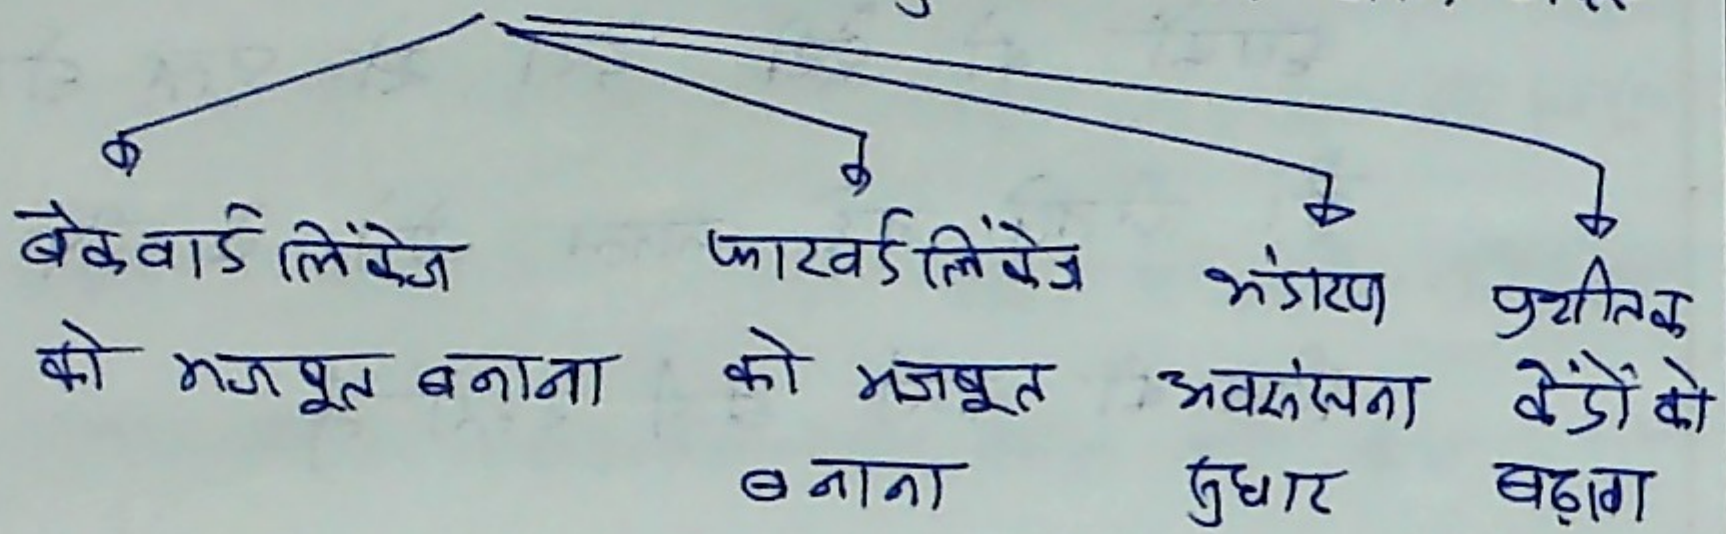 बेकवार्ड लिंकेज
को मजबूत बनाना
फारवर्ड लिंकेज
को मजबूत
बनाना
भंडारण
अवसंरचना
सुधार
प्रशीतक
केंद्रों को
बढ़ाना